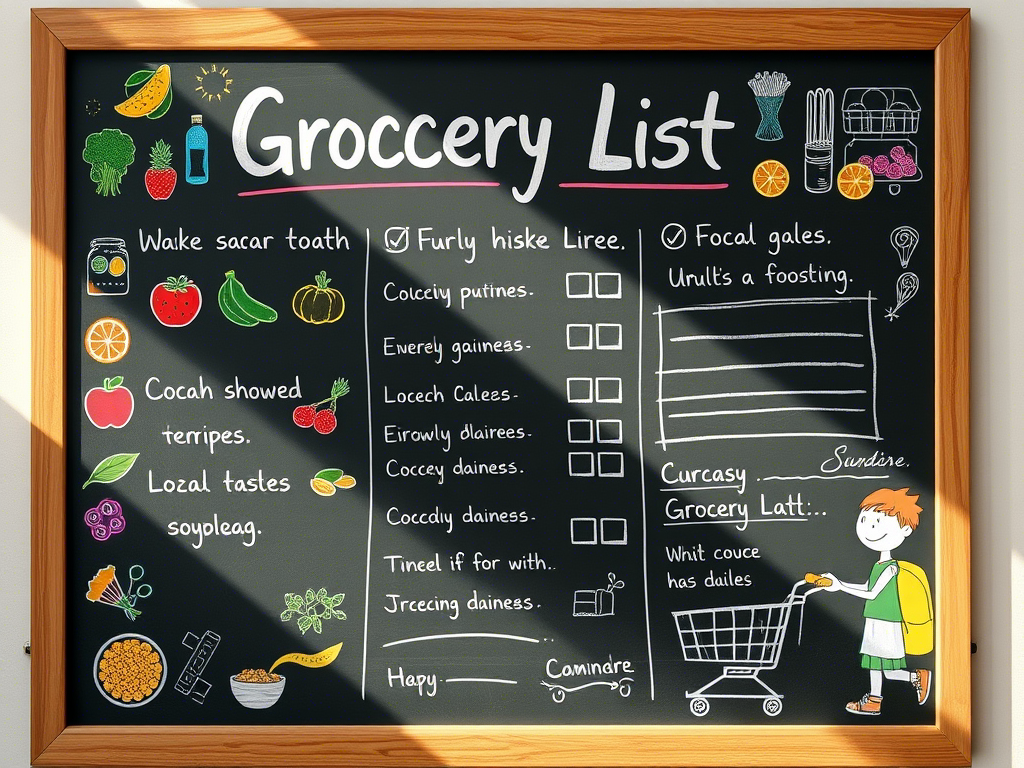 Groccery List
Waike sacar toath
Cocah showed
terripes.
Lozal tastes
soypleag.
Furly hiske Liree.
Colceiy putines.
Everely gainness.
Locech Calees.
Eirowly dlairees.
Coccey dainess.
Coccdly dainess.
Tineel if for with..
Jrecing dainess.
Hapy
Camindre
Focal gales.
Urullts a foosting.
Curcasy
Sundire.
Grocery Latt:..
Whit couce
has dailes